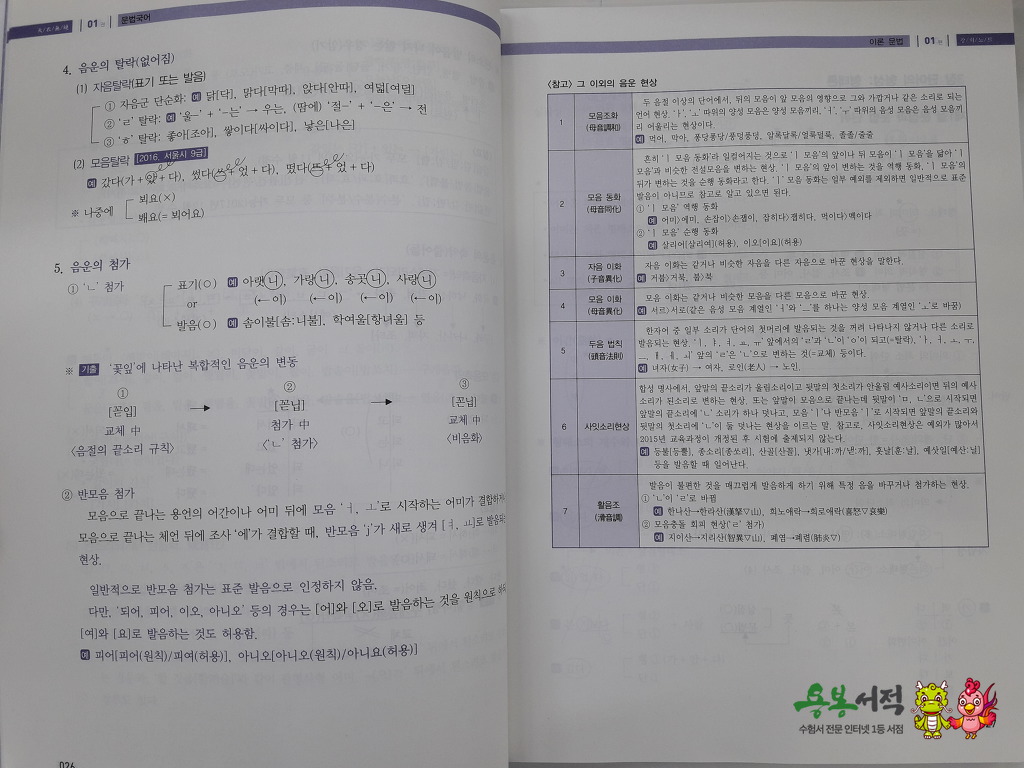 01편
문법국어
4. 음운의 탈락(없어짐)
(1) 자음탈락(표기 또는 발음)
① 자음군 단순화: 예 닭[닥], 맑다[막따], 앉다[안따], 여덟[여덜]
② 'ㄹ' 탈락: 예 '울-' + '-는' → 우는, (땀에) '절-' + '-은' → 전
③ 'ㅎ' 탈락: 좋아[조아], 쌓이다[싸이다], 낳은[나은]
(2) 모음탈락 [2016. 서울시 9급]
예 갔다(가 + 았 + 다), 썼다(쓰 + 었 + 다), 떴다(뜨 + 었 + 다)
※ 나중에
뵈요(×)
봬요(= 뵈어요)
5. 음운의 첨가
① 'ㄴ' 첨가
표기(○) 예 아랫니, 가랑니, 송곳니, 사랑니
or (←이) (←이) (←이) (←이)
발음(○) 예 솜이불[솜:니불], 학여울[항녀울] 등
※ 기출 '꽃잎'에 나타난 복합적인 음운의 변동
① ② ③
[꼳입] → [꼳닙] → [꼰닙]
교체 中 첨가 中 교체 中
<음절의 끝소리 규칙> <'ㄴ' 첨가> <비음화>
② 반모음 첨가
모음으로 끝나는 용언의 어간이나 어미 뒤에 모음 'ㅓ, ㅗ'로 시작하는 어미가 결합하거나
모음으로 끝나는 체언 뒤에 조사 '에'가 결합할 때, 반모음 'j'가 새로 생겨 [ㅕ, ㅛ]로 발음되는
현상.
일반적으로 반모음 첨가는 표준 발음으로 인정하지 않음.
다만, '되어, 피어, 이오, 아니오' 등의 경우는 [어]와 [오]로 발음하는 것을 원칙으로 하되
[여]와 [요]로 발음하는 것도 허용함.
예 피어[피어(원칙)/피여(허용)], 아니오[아니오(원칙)/아니요(허용)]
026
이론 문법
01편
<참고> 그 이외의 음운 현상
1 모음조화
(母音調和)
두 음절 이상의 단어에서, 뒤의 모음이 앞 모음의 영향으로 그와 가깝거나 같은 소리로 되는
언어 현상. 'ㅏ', 'ㅗ' 따위의 양성 모음은 양성 모음끼리, 'ㅓ', 'ㅜ' 따위의 음성 모음은 음성 모음끼
리 어울리는 현상이다.
예 먹어, 막아, 퐁당퐁당/풍덩풍덩, 알록달록/얼룩덜룩, 졸졸/줄줄
2 모음 동화
(母音同化)
흔히 'ㅣ 모음 동화'라 일컬어지는 것으로 'ㅣ 모음'의 앞이나 뒤 모음이 'ㅣ 모음'을 닮아 'ㅣ
모음'과 비슷한 전설모음을 변하는 현상. 'ㅣ 모음'의 앞이 변하는 것을 역행 동화, 'ㅣ 모음'의
뒤가 변하는 것을 순행 동화라고 한다. 'ㅣ' 모음 동화는 일부 예외를 제외하면 일반적으로 표준
발음이 아니므로 참고로 알고 있으면 된다.
① 'ㅣ 모음' 역행 동화
예 어미>에미, 손잡이>손잽이, 잡히다>잽히다, 먹이다>멕이다
② 'ㅣ 모음' 순행 동화
예 살리어[살리여](허용), 이오[이요](허용)
3 자음 이화
(子音異化)
자음 이화는 같거나 비슷한 자음을 다른 자음으로 바꾼 현상을 말한다.
예 거붑>거북, 붑>북
4 모음 이화
(母音異化)
모음 이화는 같거나 비슷한 모음을 다른 모음으로 바꾼 현상.
예 서르>서로(같은 음성 모음 계열인 'ㅓ'와 'ㅡ'를 하나는 양성 모음 계열인 'ㅗ'로 바꿈)
5 두음 법칙
(頭音法則)
한자어 중 일부 소리가 단어의 첫머리에 발음되는 것을 꺼려 나타나지 않거나 다른 소리로
발음되는 현상. 'ㅣ, ㅑ, ㅕ, ㅛ, ㅠ' 앞에서의 'ㄹ'과 'ㄴ'이 'ㅇ'이 되고(=탈락), 'ㅏ, ㅓ, ㅗ, ㅜ,
ㅡ, ㅐ, ㅔ, ㅚ' 앞의 'ㄹ'은 'ㄴ'으로 변하는 것(=교체) 등이다.
예 녀자(女子) → 여자, 로인(老人) → 노인.
6 사잇소리현상
합성 명사에서, 앞말의 끝소리가 울림소리이고 뒷말의 첫소리가 안울림 예사소리이면 뒤의 예사
소리가 된소리로 변하는 현상. 또는 앞말이 모음으로 끝나는데 뒷말이 'ㅁ, ㄴ'으로 시작되면
앞말의 끝소리에 'ㄴ' 소리가 하나 덧나고, 모음 'ㅣ'나 반모음 'ㅣ'로 시작되면 앞말의 끝소리와
뒷말의 첫소리에 'ㄴ'이 둘 덧나는 현상을 이르는 말. 참고로, 사잇소리현상은 예외가 많아서
2015년 교육과정이 개정된 후 시험에 출제되지 않는다.
예 등불[등뿔], 종소리[종쏘리], 산골[산꼴], 냇가[내:까/낻:까], 훗날[훈:날], 예삿일[예산:닐]
등을 발음할 때 일어난다.
7 활음조
(滑音調)
발음이 불편한 것을 매끄럽게 발음하게 하기 위해 특정 음을 바꾸거나 첨가하는 현상.
① 'ㄴ'이 'ㄹ'로 바뀜
예 한나산→한라산(漢拏▽山), 희노애락→희로애락(喜怒▽哀樂)
② 모음충돌 회피 현상('ㄹ' 첨가)
예 지이산→지리산(智異▽山), 폐염→폐렴(肺炎▽)
용봉서적
수험서 전문 인터넷 1등 서점